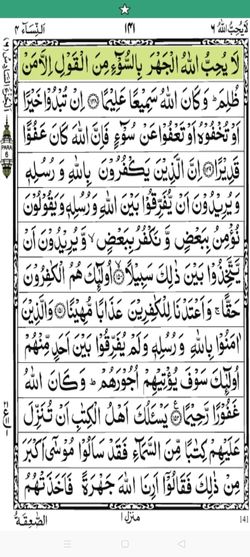 لَا يُحِبُّ اللّٰهُ ٦
١٣١
اَلنِّسَآء ٤
لَا يُحِبُّ اللّٰهُ الْجَهْرَ بِالسُّوْٓءِ مِنَ الْقَوْلِ اِلَّا مَنْ
ظُلِمَ ؕ وَ كَانَ اللّٰهُ سَمِيْعًا عَلِيْمًا ﴿۱۴۸﴾ اِنْ تُبْدُوْا خَيْرًا
اَوْ تُخْفُوْهُ اَوْ تَعْفُوْا عَنْ سُوْٓءٍ فَاِنَّ اللّٰهَ كَانَ عَفُوًّا
قَدِيْرًا ﴿۱۴۹﴾ اِنَّ الَّذِيْنَ يَكْفُرُوْنَ بِاللّٰهِ وَ رُسُلِهٖ
وَ يُرِيْدُوْنَ اَنْ يُّفَرِّقُوْا بَيْنَ اللّٰهِ وَ رُسُلِهٖ وَ يَقُوْلُوْنَ
نُؤْمِنُ بِبَعْضٍ وَّ نَكْفُرُ بِبَعْضٍ ۙ وَّ يُرِيْدُوْنَ اَنْ
يَّتَّخِذُوْا بَيْنَ ذٰلِكَ سَبِيْلًا ﴿۱۵۰﴾ اُولٰٓئِكَ هُمُ الْكٰفِرُوْنَ
حَقًّا ۚ وَ اَعْتَدْنَا لِلْكٰفِرِيْنَ عَذَابًا مُّهِيْنًا ﴿۱۵۱﴾ وَ الَّذِيْنَ
اٰمَنُوْا بِاللّٰهِ وَ رُسُلِهٖ وَ لَمْ يُفَرِّقُوْا بَيْنَ اَحَدٍ مِّنْهُمْ
اُولٰٓئِكَ سَوْفَ يُؤْتِيْهِمْ اُجُوْرَهُمْ ؕ وَ كَانَ اللّٰهُ
غَفُوْرًا رَّحِيْمًا ﴿۱۵۲﴾ يَسْـَٔلُكَ اَهْلُ الْكِتٰبِ اَنْ تُنَزِّلَ
عَلَيْهِمْ كِتٰبًا مِّنَ السَّمَآءِ فَقَدْ سَاَلُوْا مُوْسٰۤى اَكْبَرَ
مِنْ ذٰلِكَ فَقَالُوْۤا اَرِنَا اللّٰهَ جَهْرَةً فَاَخَذَتْهُمُ
PARA
6
منزل ١
الصّٰعِقَةُ
[4]